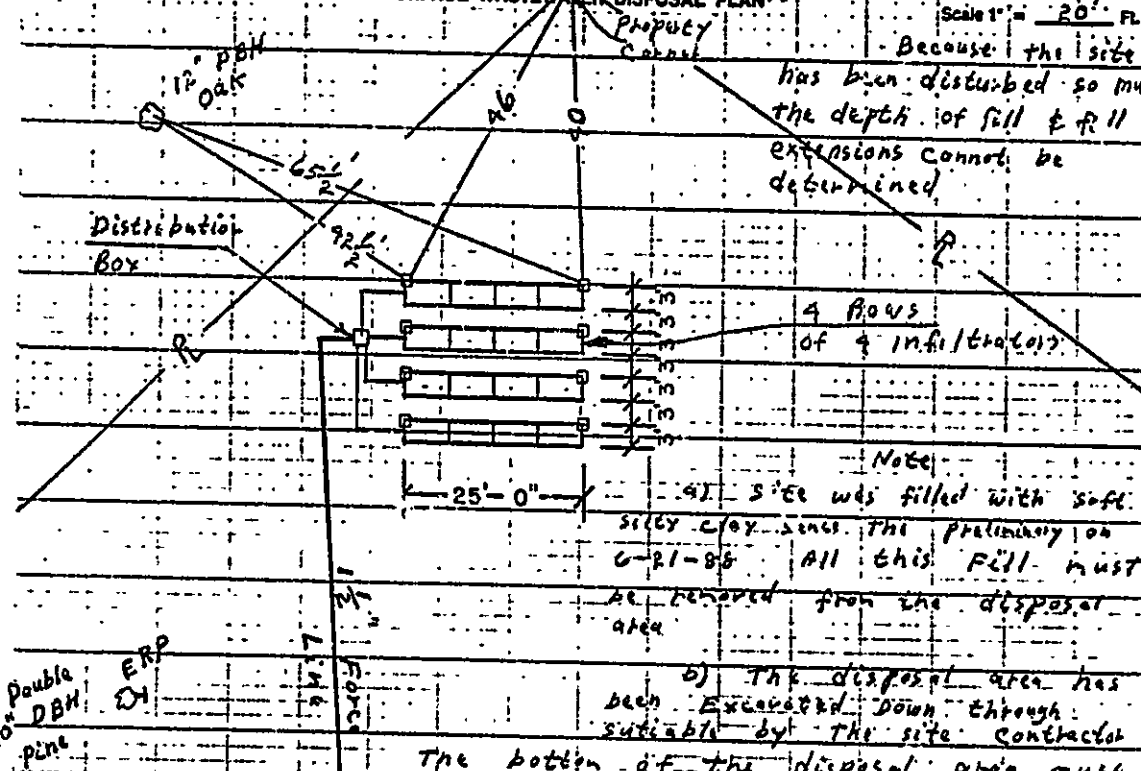 DISPOSAL PLAN
Scale 1" = 20' Ft.
Property
Corner
Because the site
has been disturbed so mu
the depth of fill & fill
extensions cannot be
determined
12" DBH
Oak
46
40
65 1/2'
42 1/2'
Distribution
Box
PL
4 Rows
of 4 infiltrators
3'
3'
3'
3'
3'
3'
3'
25'-0"
Note
a) Site was filled with soft
silty clay since the preliminary on
6-21-88 All this Fill must
be removed from the disposal
area
1 1/2"
Force
Line
ERP
Double
DBH
pine
b) The disposal area has
been Excavated Down through
sutiable by The site contractor
The bottom of the disposal area must